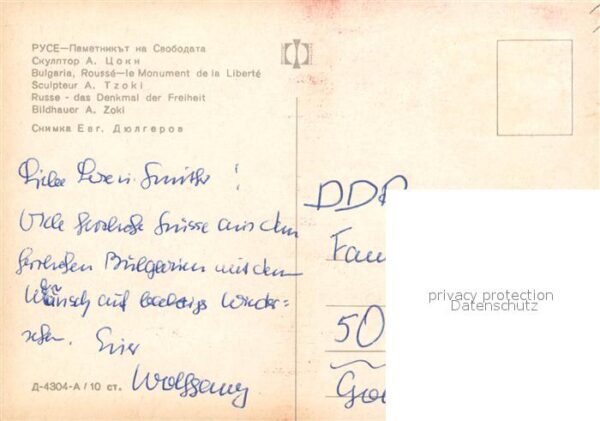 РУСЕ—Паметникът на Свободата
Скулптор А. Цоки
Bulgaria, Roussé—le Monument de la Liberté
Sculpteur A. Tzoki
Russe - das Denkmal der Freiheit
Bildhauer A. Zoki
Снимка Евг. Дюлгеров
Liebe !
Viele Grüsse aus dem
Bulgarien mit dem
Wunsch auf baldiges Wieder-
sehen. Euer
Wolfgang
Д-4304-А/10 ст.
DDR
Fam
50
privacy protection
Datenschutz